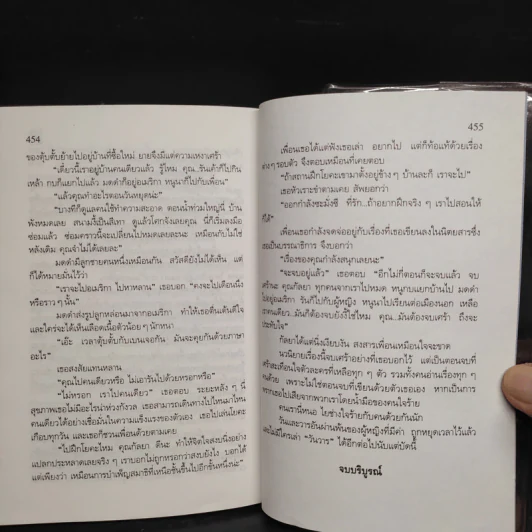 454
ของตุ้บตั้บย้ายไปอยู่บ้านที่ซื้อใหม่ ยายจึงมีแต่ความเหงาเศร้า
“เดี๋ยวนี้เราอยู่บ้านคนเดียวแล้ว รู้ไหม คุณ..รันเค้าก็ไปกิน
เหล้า กบก็แยกไปแล้ว มดดำก็อยู่อเมริกา หนูนาก็ไปกับเพื่อน”
“แล้วคุณทำอะไรตอนวันหยุดน่ะ”
“บางทีก็ดูแลคนใช้ทำความสะอาด ตอนน้ำท่วมใหญ่นี่ บ้าน
พังหมดเลย สนามงี้เป็นสีเทา ดูแล้วโคกจังเลยคุณ นี่ก็เริ่มลงมือ
ซ่อมแล้ว ซ่อมคราวนี้จะเปลี่ยนไปหมดเลยละนะ เหมือนกับไม่ใช่
หลังเดิม คุณจำไม่ได้เลยละ”
มดดำมีลูกชายคนหนึ่งเหมือนกัน สวัสดียังไม่ได้เห็น แต่
ก็ได้หมายมั่นไว้ว่า
“เราจะไปอเมริกา ไปหาหลาน” เธอบอก “คงจะไปเดือนนึง
หรือราว ๆ นั้น”
มดดำส่งรูปลูกหล่อนมาจากอเมริกา ทำให้เธอตื่นเต้นดีใจ
และใคร่จะได้เห็นเลือดเนื้อตัวน้อย ๆ นักหนา
“เอ๊ะ เวลาตุ้บตั้บกับเบนเจอกัน มันจะคุยกันด้วยภาษา
อะไร”
เธอสงสัยแทนหลาน
“คุณไปคนเดียวหรือ ไม่เอารันไปด้วยหรอกหรือ”
“ไม่หรอก เราไปคนเดียว” เธอตอบ ระยะหลัง ๆ นี่
สุขภาพเธอไม่มีอะไรน่าห่วงกังวล เธอสามารถเดินทางไปไหนมาไหน
คนเดียวได้อย่างเชื่อมั่นในความแข็งแรงของตัวเอง เธอไปเล่นโยคะ
เกือบทุกวัน และเธอก็ชวนเพื่อนด้วยตามเคย
“ไปฝึกโยคะไหม คุณกัลยา ดีนะ ทำให้จิตใจสงบนิ่งอย่าง
แปลกประหลาดเลยจริง ๆ เราบอกไม่ถูกหรอกว่าสงบยังไง บอกได้
แต่เพียงว่า เหมือนการบำเพ็ญสมาธิที่เหนือชั้นขึ้นไปอีกชั้นหนึ่งน่ะ”
455
เพื่อนเธอได้แต่ฟังเธอเล่า อยากไป แต่ก็ท้อแท้ด้วยเรื่อง
ต่าง ๆ รอบตัว จึงตอบเหมือนที่เคยตอบ
“ถ้าสถานฝึกโยคะเขามาตั้งอยู่ข้าง ๆ บ้านละก็ เราจะไป”
เธอหัวเราะขำตามเคย สัพยอกว่า
“ออกกำลังซะมั่งซี ที่รัก..ถ้าอยากฝึกจริง ๆ เราไปสอนให้
ก็ได้”
เพื่อนเธอกำลังจดจ่ออยู่กับเรื่องที่เธอเขียนลงในนิตยสารซึ่ง
เธอเป็นบรรณาธิการ จึงบอกว่า
“เรื่องของคุณกำลังสนุกเลยนะ”
“จะจบอยู่แล้ว” เธอตอบ “อีกไม่กี่ตอนก็จะจบแล้ว จบ
เศร้านะ คุณกัลยา ทุกคนจากเราไปหมด หนูกบแยกบ้านไป มดดำ
ไปอยู่อเมริกา รันก็ไปกับผู้หญิง หนูนาไปเรียนต่อเมืองนอก เหลือ
เราคนเดียว..มันก็ต้องจบยังงี้ใช่ไหม คุณ...มันต้องจบเศร้า ถึงจะ
ประทับใจ”
กัลยาได้แต่นิ่งเงียบงัน สงสารเพื่อนเหนือใจจะขาด
นวนิยายเรื่องนี้จบเศร้าอย่างที่เธอบอกไว้ แต่เป็นตอนจบที่
เศร้าสะเทือนใจตัวละครที่เหลือทุก ๆ ตัว รวมทั้งคนอ่านเรื่องทุก ๆ
คนด้วย เพราะไม่ใช่ตอนจบที่เขียนด้วยตัวเธอเอง หากเป็นการ
พรากเธอไปเสียจากพวกเราโดยน้ำมือของคนใจร้าย
คนเรานี่หนอ ไยช่างใจร้ายกับคนด้วยกันนัก
วันและวารอันผ่านพ้นของผู้หญิงที่มีค่า ถูกหยุดเวลาไว้แล้ว
และไม่มีใครเล่า “วันวาร” ได้อีกต่อไปนับแต่บัดนี้
จบบริบูรณ์